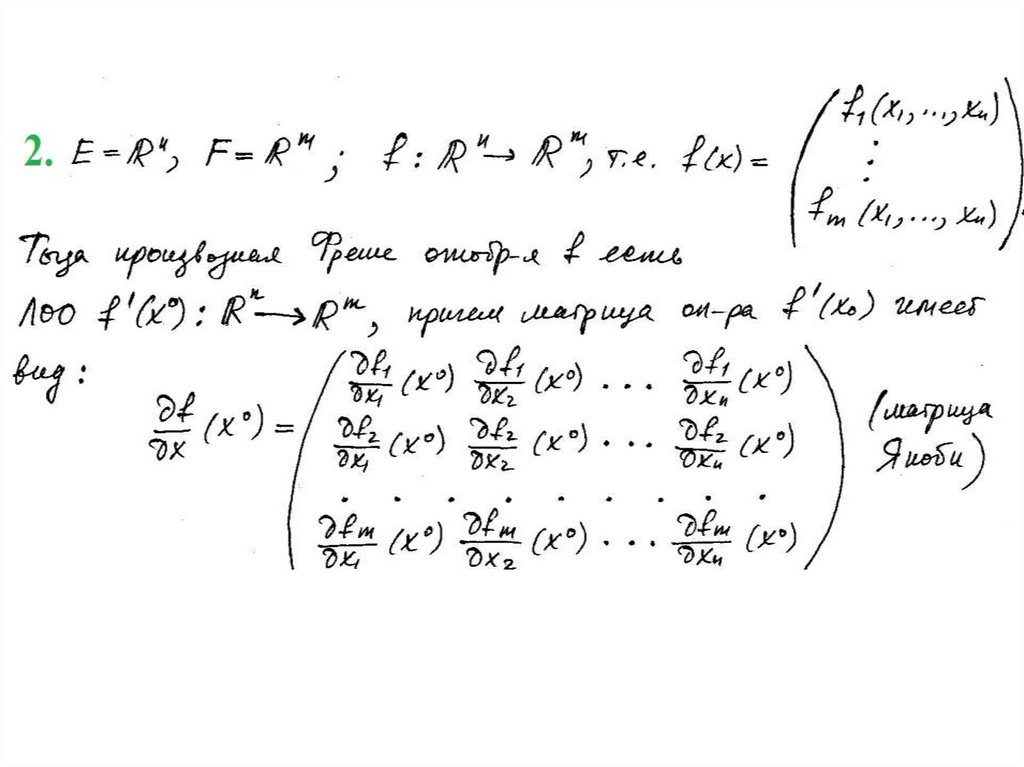 2. E = ℝⁿ, F = ℝᵐ ; f : ℝⁿ → ℝᵐ, т.е. f(x) = ( f₁(x₁, ..., xₙ) ⋮ fₘ(x₁, ..., xₙ) ).
Тогда производная Фреше отобр-я f есть
ЛОО f'(x⁰) : ℝⁿ → ℝᵐ, причем матрица оп-ра f'(x₀) имеет
вид :
∂f₁/∂x₁ (x⁰) ∂f₁/∂x₂ (x⁰) . . . ∂f₁/∂xₙ (x⁰)
∂f/∂x (x⁰) = ∂f₂/∂x₁ (x⁰) ∂f₂/∂x₂ (x⁰) . . . ∂f₂/∂xₙ (x⁰) (матрица
Якоби)
. . . . . . . . .
∂fₘ/∂x₁ (x⁰) ∂fₘ/∂x₂ (x⁰) . . . ∂fₘ/∂xₙ (x⁰)